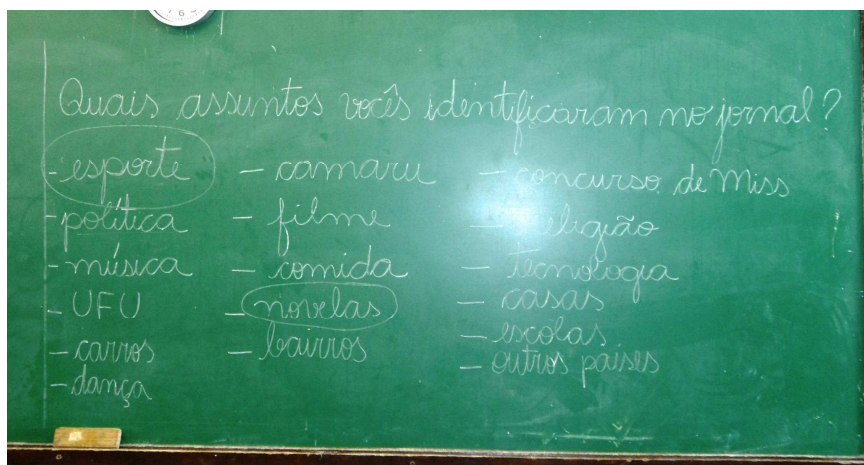 Quais assuntos vocês identificaram no jornal?
- esporte
- política
- música
- UFU
- carros
- dança
- camaru
- filme
- comida
- novelas
- bairros
- concurso de Miss
- religião
- tecnologia
- casas
- escolas
- outros países
6